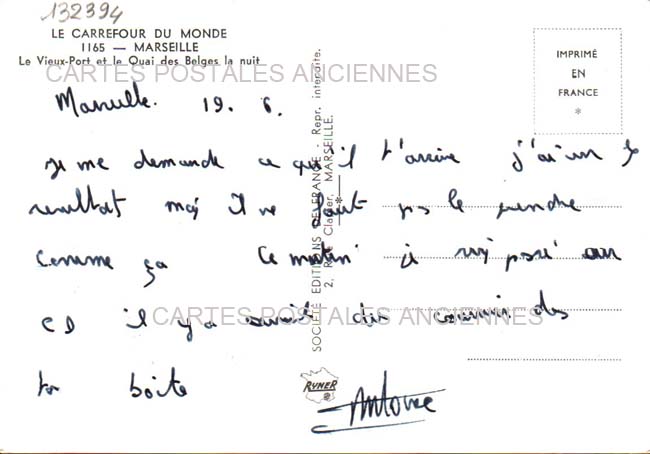 132394
LE CARREFOUR DU MONDE
1165 — MARSEILLE
Le Vieux-Port et le Quai des Belges la nuit
CARTES POSTALES ANCIENNES
IMPRIMÉ
EN
FRANCE
*
19. 6.
je me demande ce qu'il t'arrive j'ai un
resultat mais il ne faut pas le prendre
comme ça ce matin à
CD il y a du courrier des
ta boîte
Antoine
CARTES POSTALES ANCIENNES
SOCIÉTÉ EDITIONS DE FRANCE - Repr. interdite.
2, Rue MARSEILLE.
RYNER